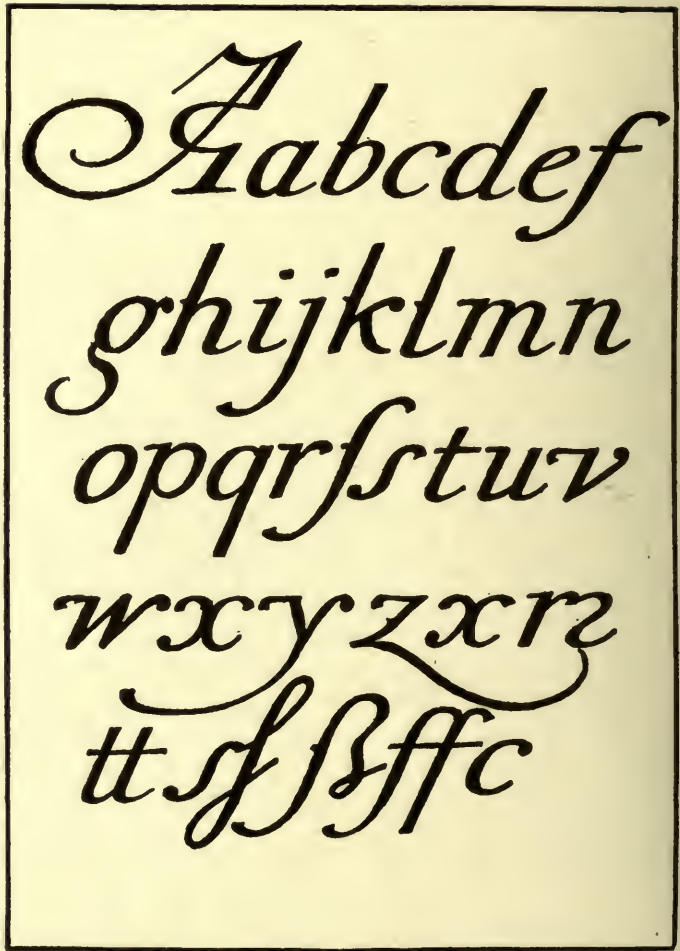 Aabcdef
ghijklmn
opqrſstuv
wxyzxrz
ttsfßffc